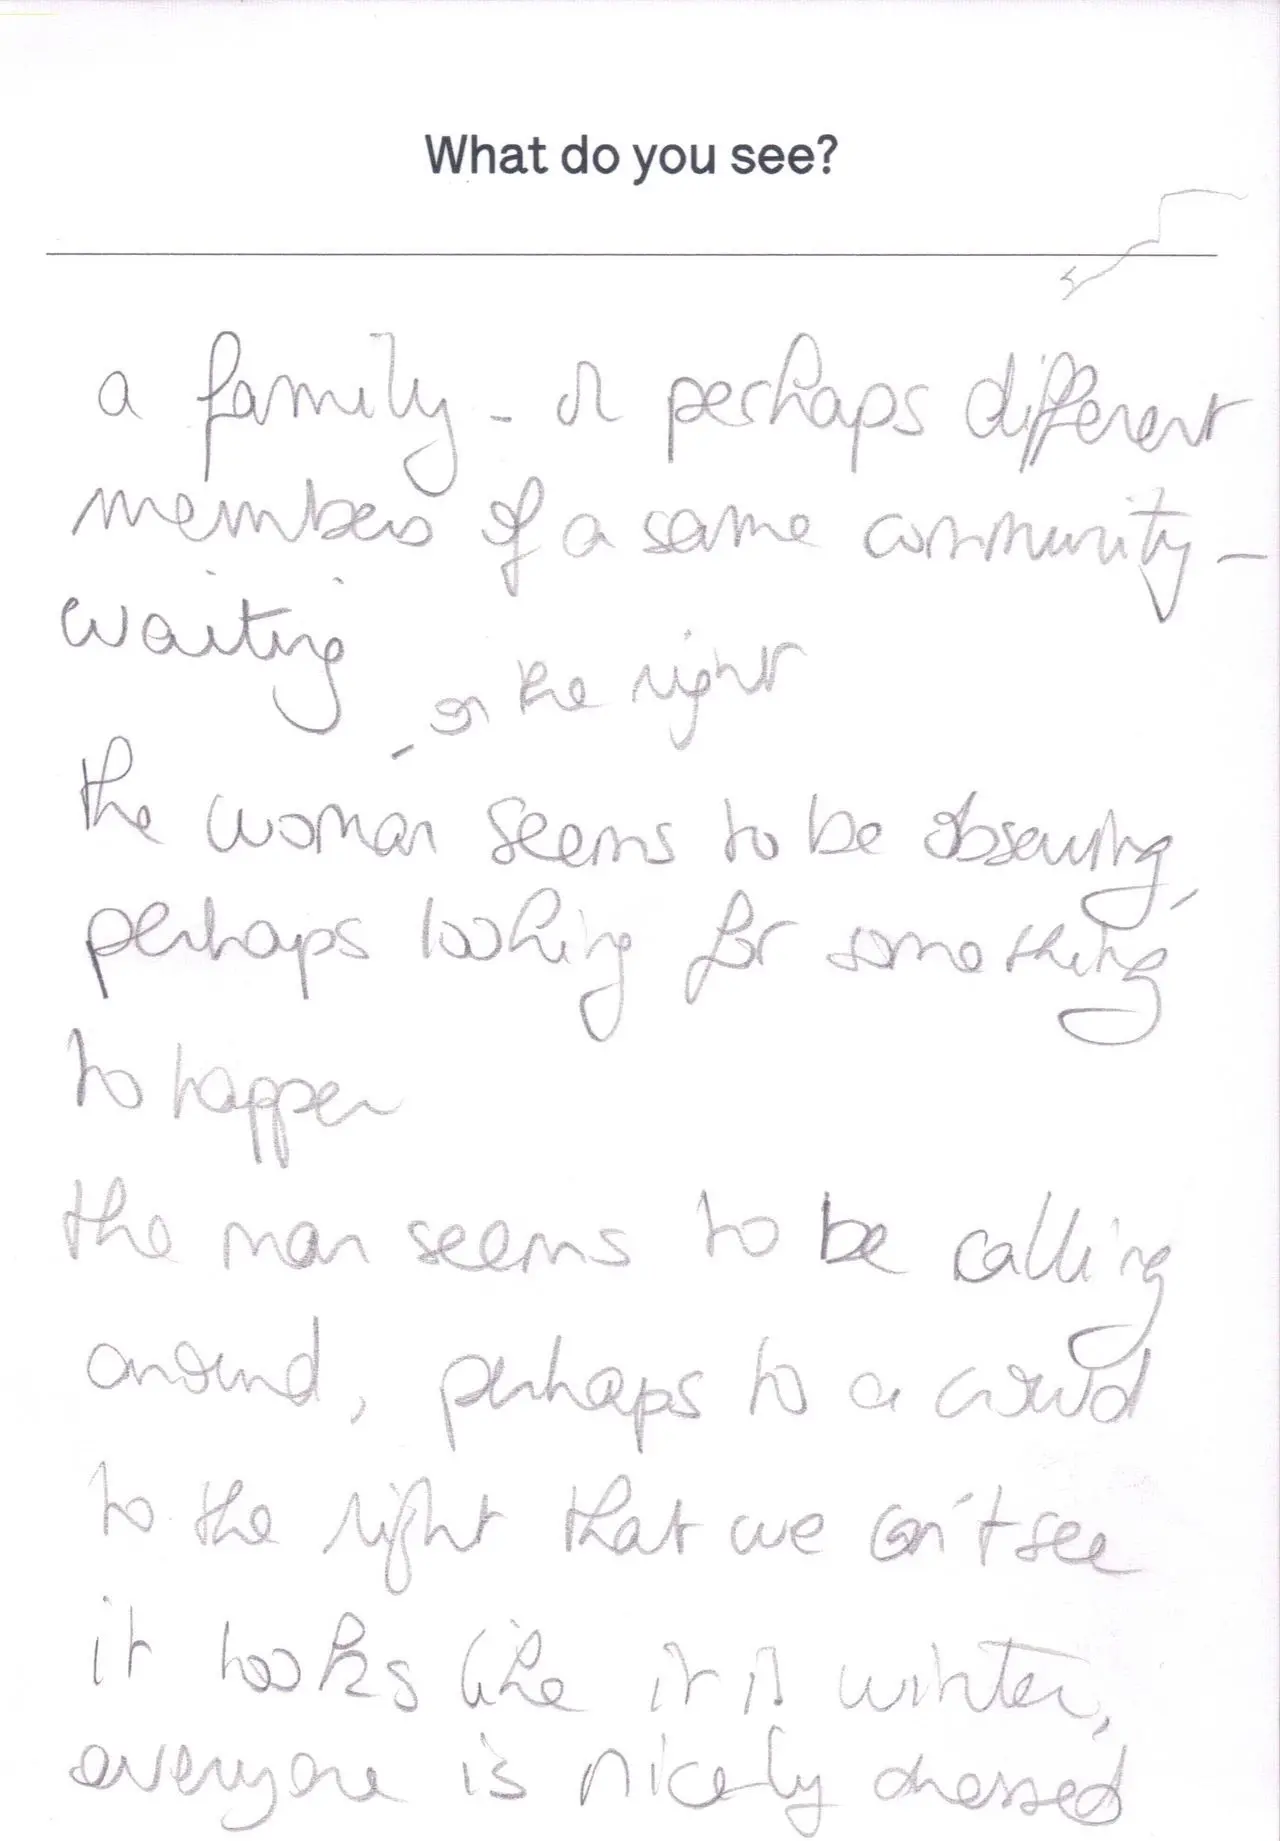 What do you see?
a family - or perhaps different
members of a same community -
waiting
- on the right
the woman seems to be observing,
perhaps looking for something
to happen
the man seems to be calling
around, perhaps to a crowd
to the right that we can't see
it looks like it is winter,
everyone is nicely dressed